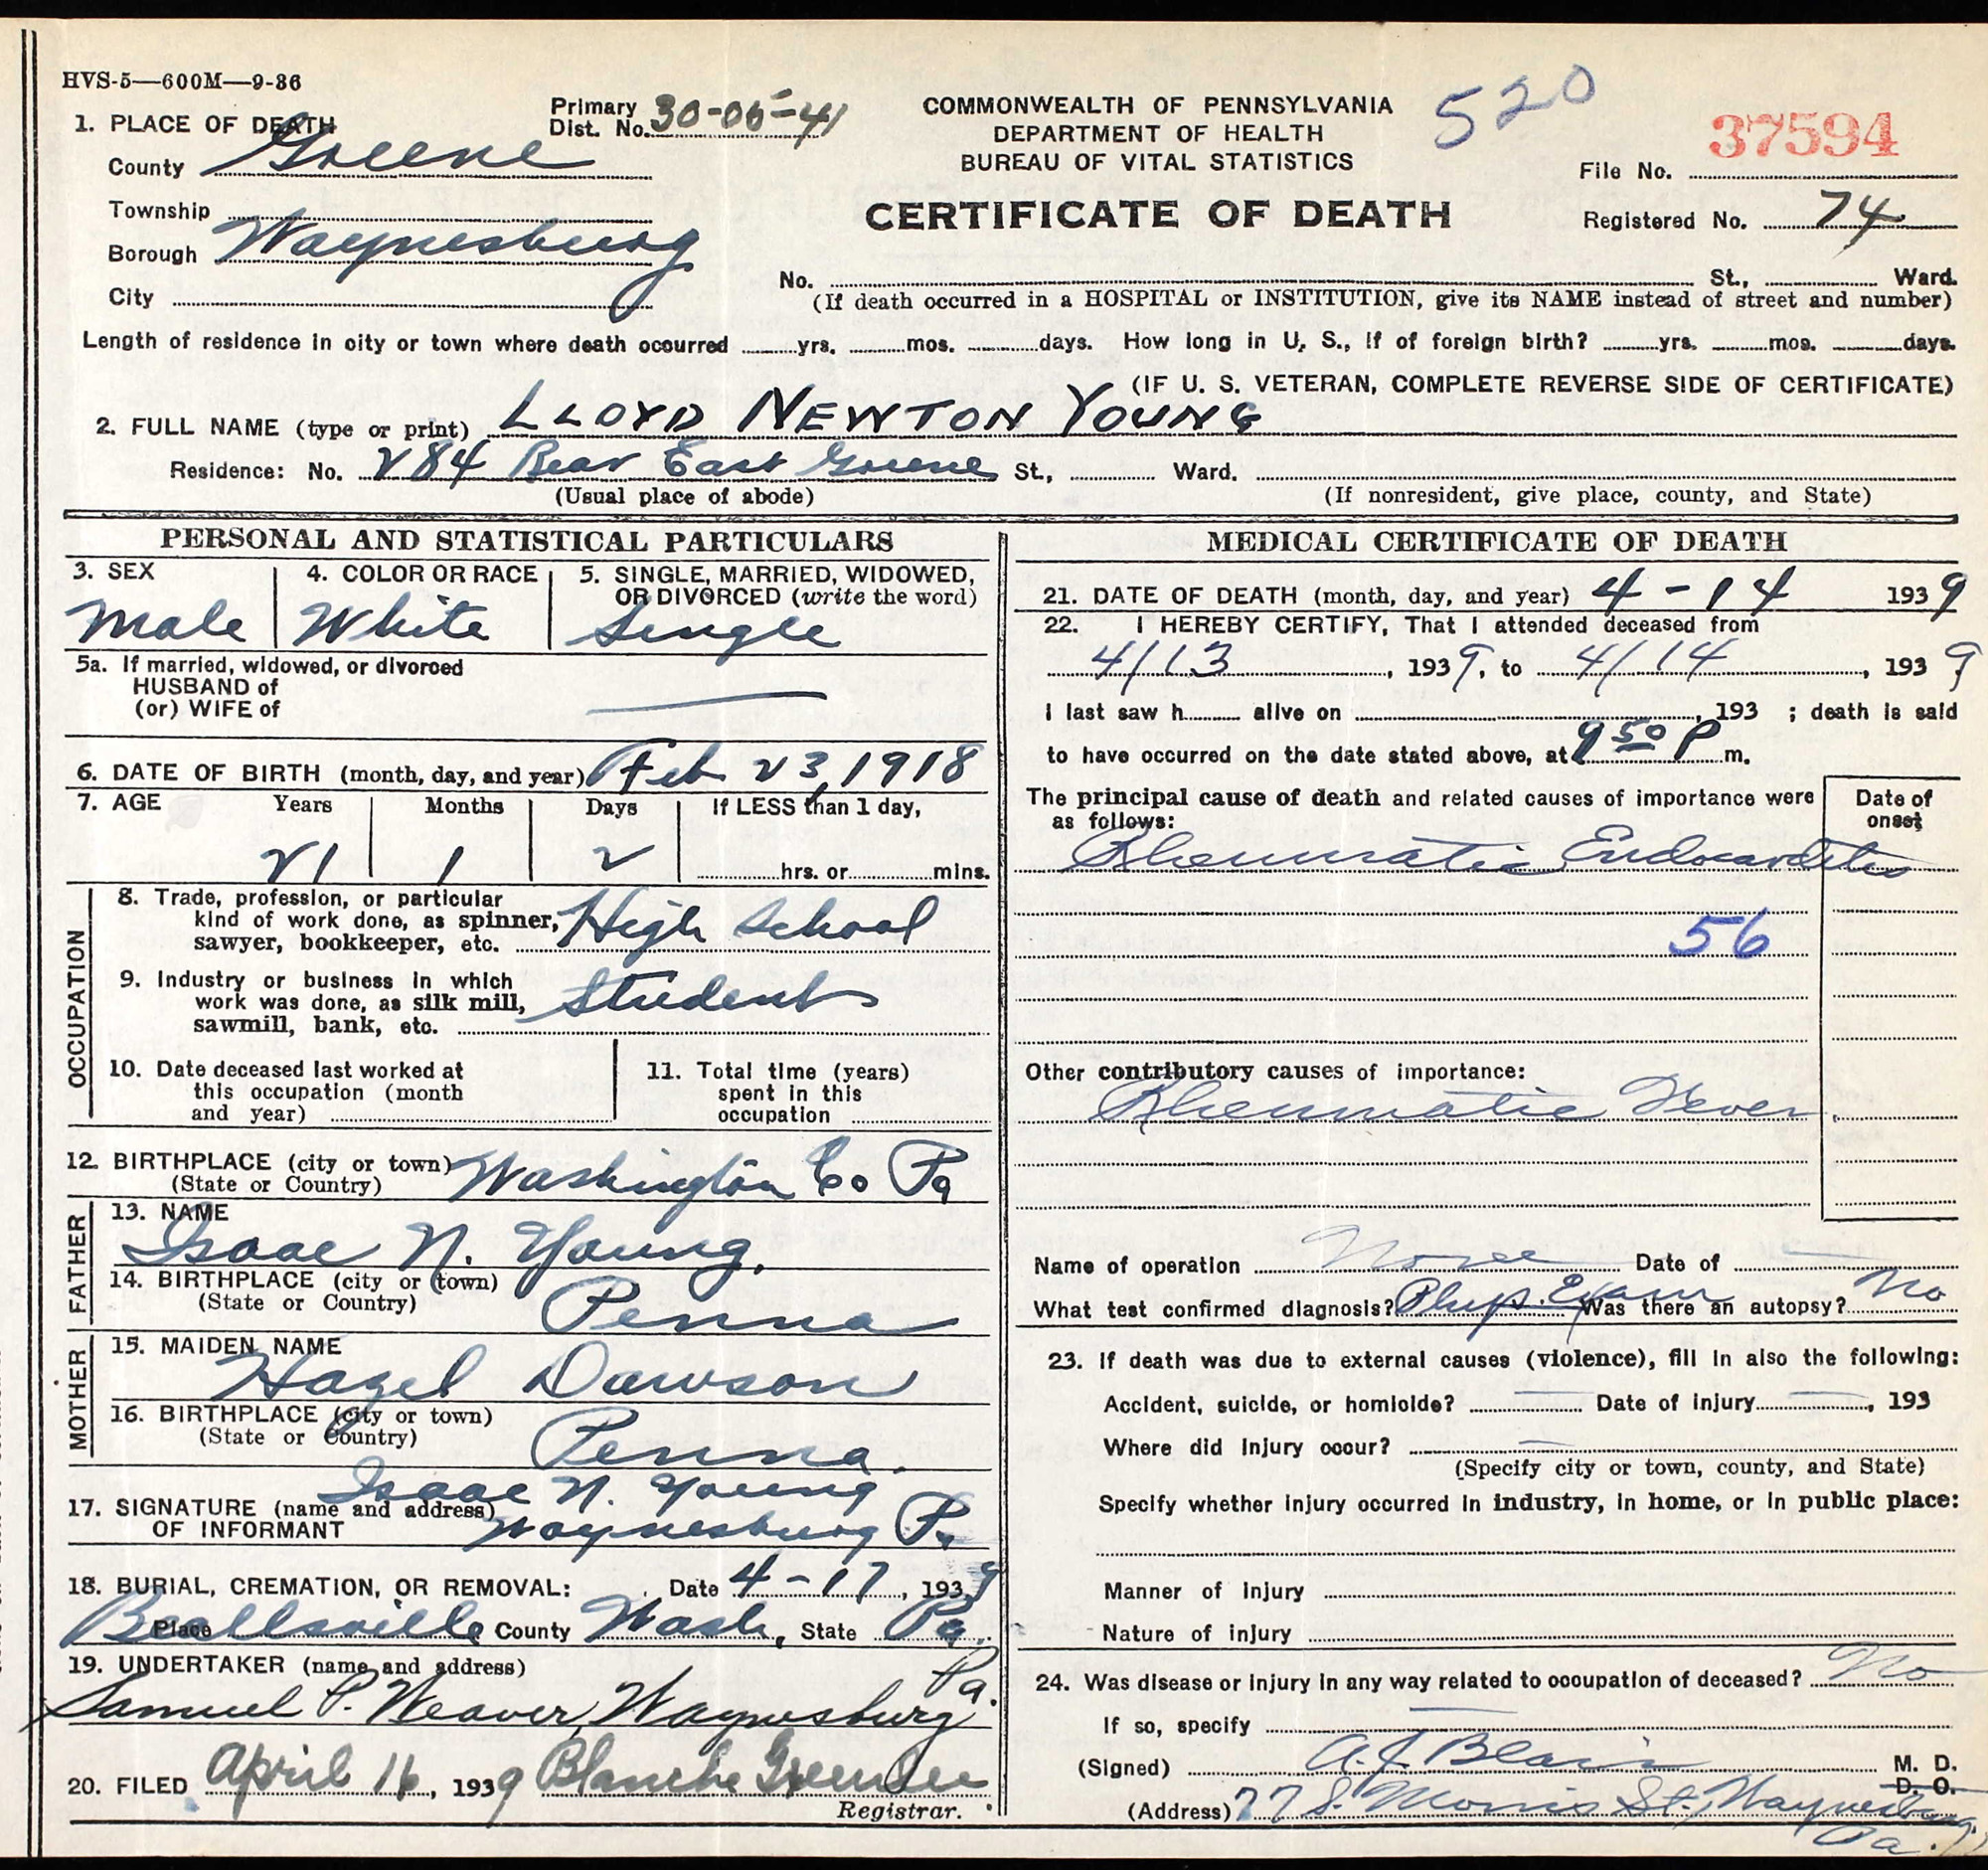 HVS-5—600M—9-36
1. PLACE OF DEATH
Primary Dist. No. 30-06-41
County Greene
Township
Borough Waynesburg
City
COMMONWEALTH OF PENNSYLVANIA
DEPARTMENT OF HEALTH
BUREAU OF VITAL STATISTICS
CERTIFICATE OF DEATH
520
37594
File No.
Registered No. 74
No. St., Ward.
(If death occurred in a HOSPITAL or INSTITUTION, give its NAME instead of street and number)
Length of residence in city or town where death occurred yrs. mos. days. How long in U. S., if of foreign birth? yrs. mos. days.
(IF U. S. VETERAN, COMPLETE REVERSE SIDE OF CERTIFICATE)
2. FULL NAME (type or print) LLOYD NEWTON YOUNG
Residence: No. 284 Rear East Greene St., Ward.
(Usual place of abode) (If nonresident, give place, county, and State)
PERSONAL AND STATISTICAL PARTICULARS
3. SEX
Male
4. COLOR OR RACE
White
5. SINGLE, MARRIED, WIDOWED,
OR DIVORCED (write the word)
Single
5a. If married, widowed, or divorced
HUSBAND of
(or) WIFE of
6. DATE OF BIRTH (month, day, and year) Feb 23, 1918
7. AGE Years Months Days If LESS than 1 day,
21 1 2 hrs. or mins.
OCCUPATION
8. Trade, profession, or particular
kind of work done, as spinner,
sawyer, bookkeeper, etc. High School
9. Industry or business in which
work was done, as silk mill,
sawmill, bank, etc. Student
10. Date deceased last worked at
this occupation (month
and year)
11. Total time (years)
spent in this
occupation
12. BIRTHPLACE (city or town) Washington Co Pa
(State or Country)
FATHER
13. NAME
Isaac N. Young.
14. BIRTHPLACE (city or town)
(State or Country) Penna
MOTHER
15. MAIDEN NAME
Hazel Dawson
16. BIRTHPLACE (city or town)
(State or Country) Penna.
Isaac N. Young
17. SIGNATURE (name and address)
OF INFORMANT Waynesburg Pa
18. BURIAL, CREMATION, OR REMOVAL: Date 4-17, 1939
Place Beallsville County Wash, State Pa.
19. UNDERTAKER (name and address)
Samuel P. Weaver, Waynesburg Pa.
20. FILED April 16, 1939 Blanche Greenlee
Registrar.
MEDICAL CERTIFICATE OF DEATH
21. DATE OF DEATH (month, day, and year) 4-14 1939
22. I HEREBY CERTIFY, That I attended deceased from
4/13, 1939, to 4/14, 1939
I last saw h alive on , 193 ; death is said
to have occurred on the date stated above, at 9 50 P m.
The principal cause of death and related causes of importance were
as follows:
Date of
onset
Rheumatic Endocarditis
56
Other contributory causes of importance:
Rheumatic Fever
Name of operation None Date of
What test confirmed diagnosis? Phys. Exam Was there an autopsy? No
23. If death was due to external causes (violence), fill in also the following:
Accident, suicide, or homicide? Date of injury , 193
Where did injury occur?
(Specify city or town, county, and State)
Specify whether injury occurred in industry, in home, or in public place:
Manner of injury
Nature of injury
24. Was disease or injury in any way related to occupation of deceased? No
If so, specify
(Signed) A. J. Blair M. D.
D. O.
(Address) 77 S. Morris St., Waynesburg,
Pa.